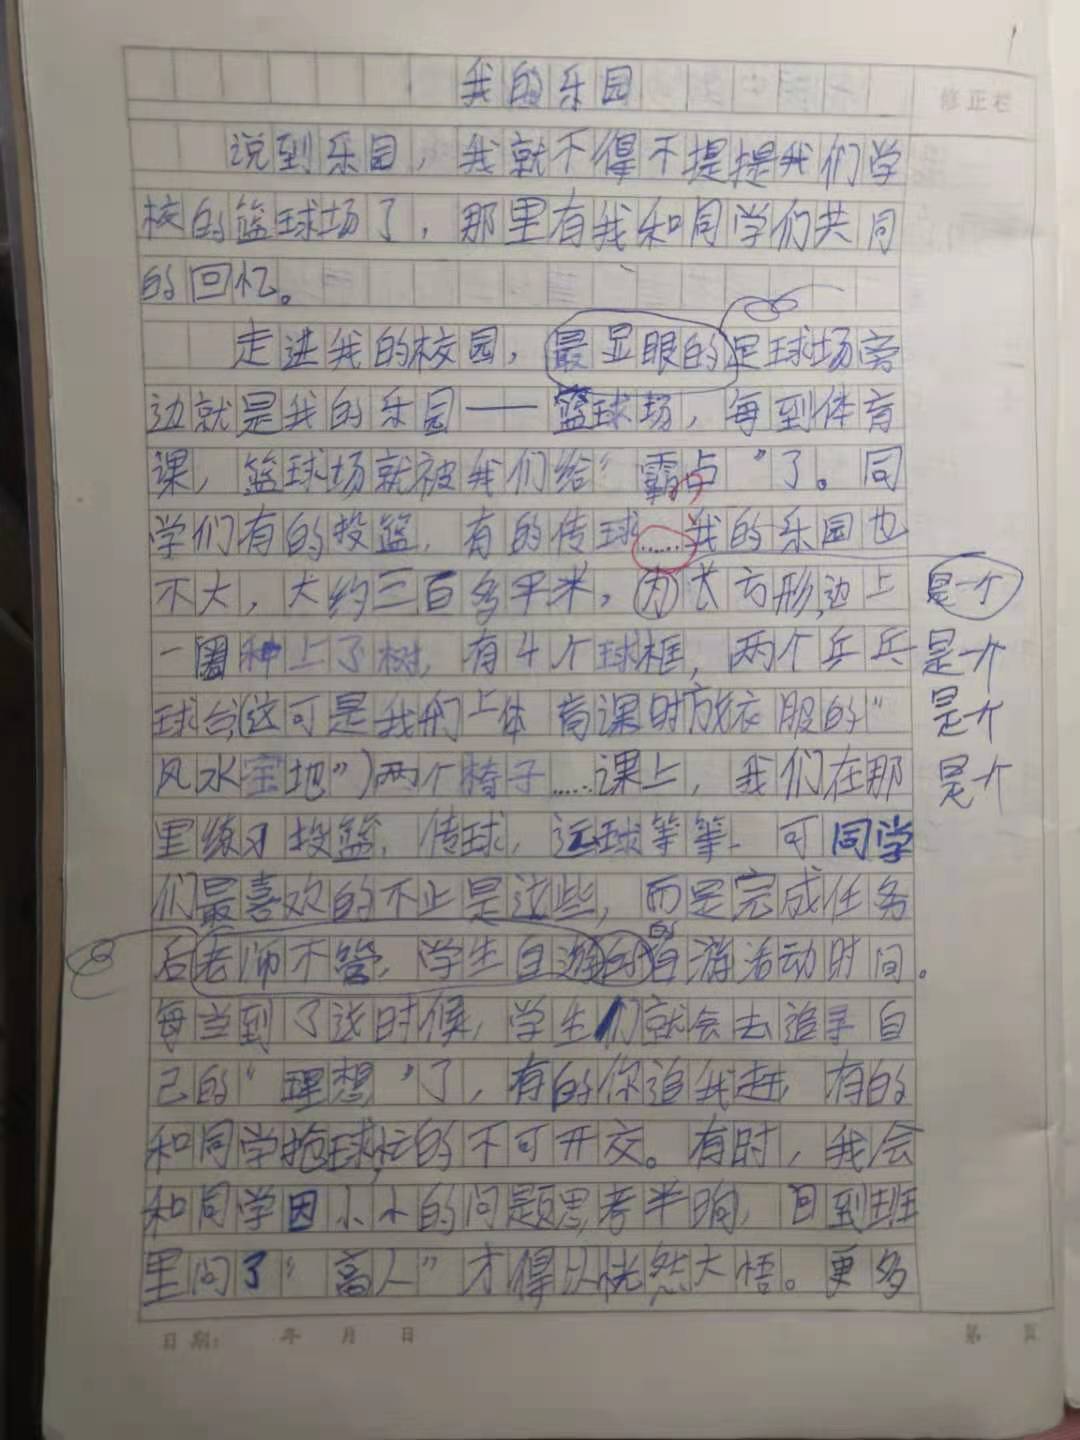 我的乐园
修正栏
说到乐园，我就不得不提提我们学
校的篮球场了，那里有我和同学们共同
的回忆。
走进我的校园，最显眼的足球场旁
边就是我的乐园——篮球场，每到体育
课，篮球场就被我们给“霸占”了。同
学们有的投篮，有的传球……我的乐园也
不大，大约三百多平米，为长方形，边上
是一个
一圈种上了树，有4个球框，两个乒乓
是一个
球台（这可是我们上体育课时放衣服的“
是个
风水宝地”）两个椅子……课上，我们在那
是个
里练习投篮，传球，运球等等，可同学
们最喜欢的不止是这些，而是完成任务
后老师不管，学生自游的自游活动时间。
每当到了这时候，学生们就会去追寻自
己的“理想”了，有的你追我赶，有的
和同学抢球忙的不可开交。有时，我会
和同学因小小的问题思考半晌，回到班
里问了“高人”才得以恍然大悟。更多
日期： 年 月 日
第 页